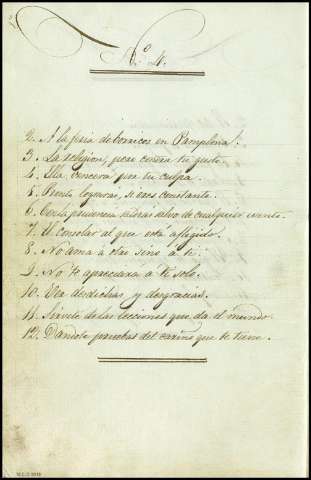 N.º 4.
2. A la feria de borricos en Pamplona.
3. La religion, pear contra tu gusto.
4. Ella vencerá por tu culpa.
5. Puede lograrse, si eres constante.
6. Con la prudencia saldras salvo de cualquier evento.
7. El consolar al que está afligido.
8. No ama á otas sino á ti.
9. No te apreciara á ti solo.
10. Vea desdichas y desgracias.
11. Sirvete de las lecciones que da el mundo.
12. Dandote pruebas del cariño que te tiene.